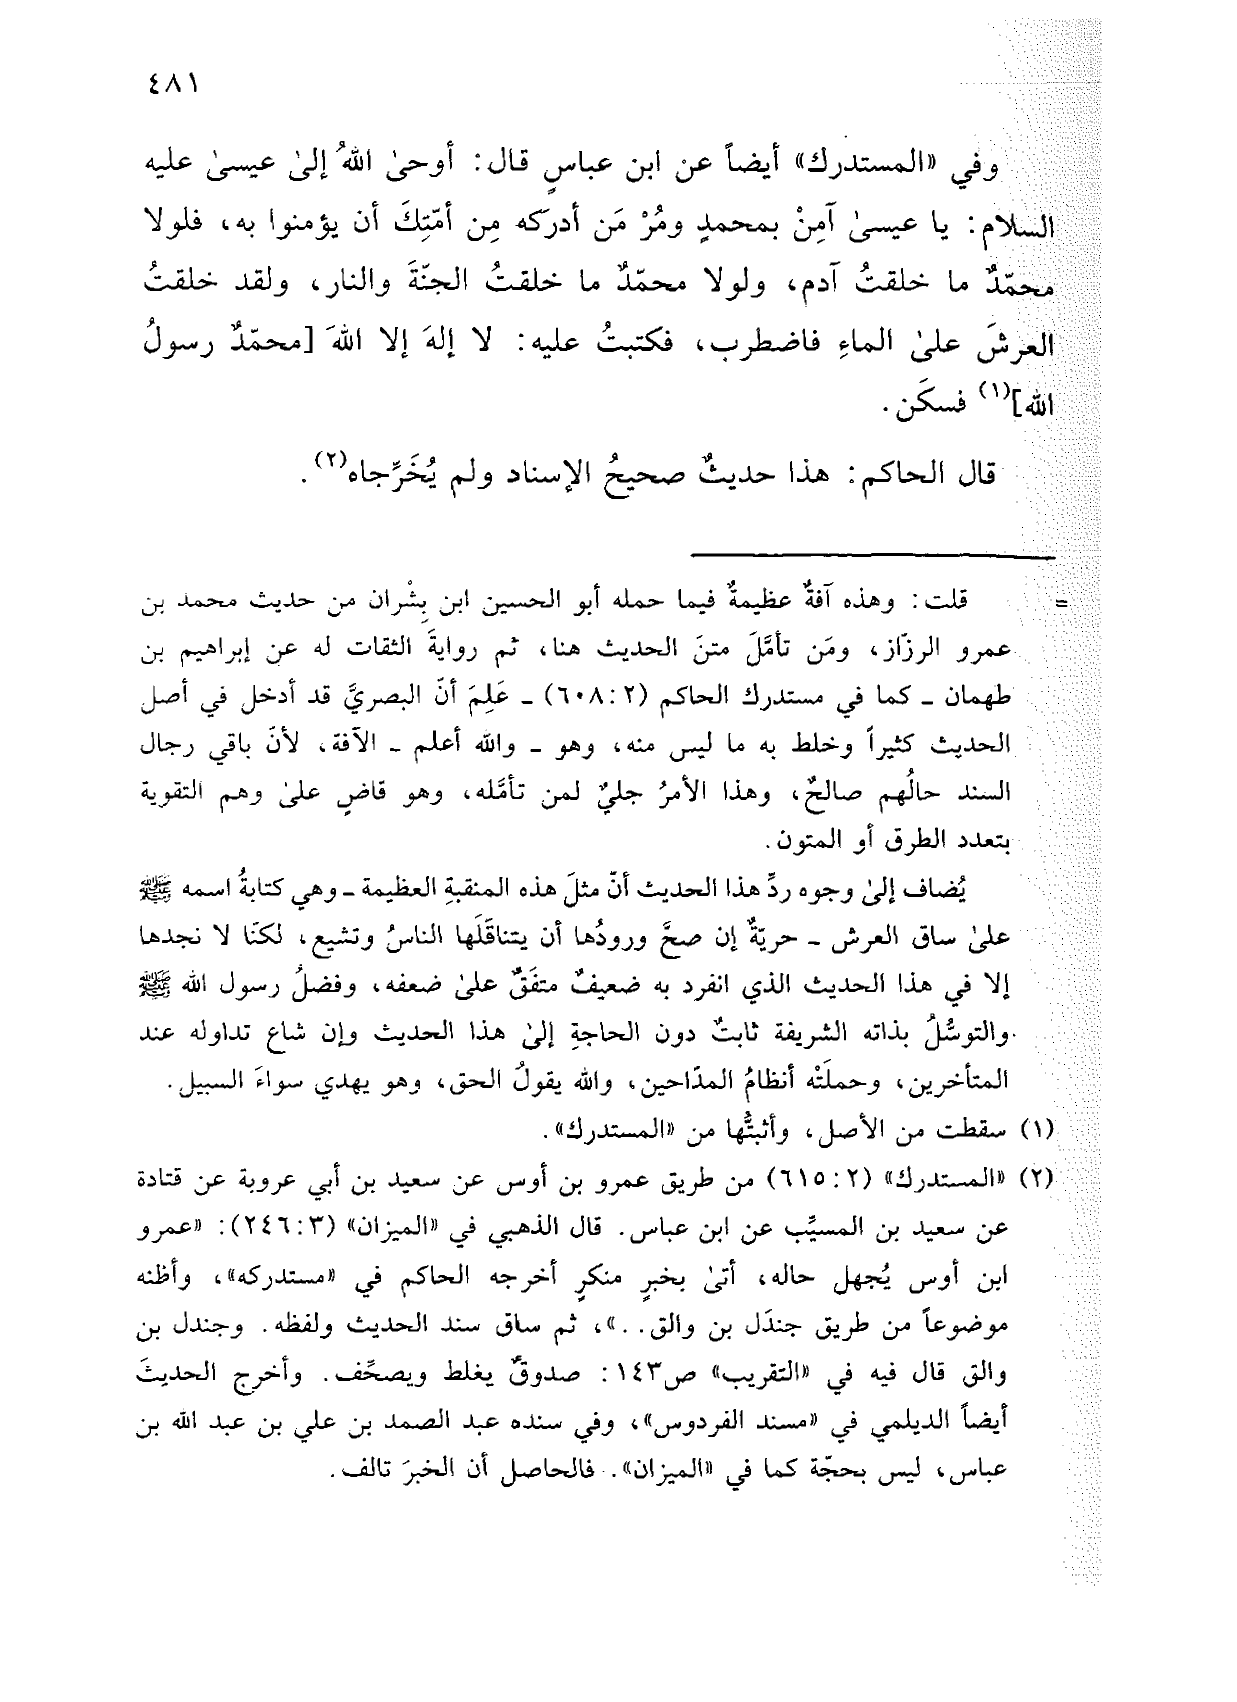 ٤٨١
وفي «المستدرك» أيضاً عن ابن عباسٍ قال: أوحىٰ اللهُ إلىٰ عيسىٰ عليه
السلام: يا عيسىٰ آمِنْ بمحمدٍ ومُرْ مَن أدرَكه مِن أمّتِكَ أن يؤمنوا به، فلولا
محمّدٌ ما خلقتُ آدم، ولولا محمّدٌ ما خلقتُ الجنّةَ والنار، ولقد خلقتُ
العرشَ علىٰ الماءِ فاضطرب، فكتبتُ عليه: لا إلهَ إلا اللهَ [محمّدٌ رسولُ
الله](١) فسكَن.
قال الحاكم: هذا حديثٌ صحيحُ الإسناد ولم يُخَرِّجاه(٢).
= قلت: وهذه آفةٌ عظيمةٌ فيما حمله أبو الحسين ابن بِشْران من حديث محمد بن
عمرو الرزّاز، ومَن تأمَّلَ متنَ الحديث هنا، ثم روايةَ الثقات له عن إبراهيم بن
طهمان ـ كما في مستدرك الحاكم (٢: ٦٠٨) ـ عَلِمَ أنّ البصريَّ قد أدخل في أصل
الحديث كثيراً وخلط به ما ليس منه، وهو ـ والله أعلم ـ الآفة، لأنَ باقي رجال
السند حالُهم صالحٌ، وهذا الأمرُ جليٌ لمن تأمَّله، وهو قاضٍ علىٰ وهم التقوية
بتعدد الطرق أو المتون.
يُضاف إلىٰ وجوه ردِّ هذا الحديث أنّ مثلَ هذه المنقبةِ العظيمة ـ وهي كتابةُ اسمه ﷺ
علىٰ ساق العرش ـ حريّةٌ إن صحَّ ورودُها أن يتناقَلَها الناسُ وتشيع، لكنّا لا نجدها
إلا في هذا الحديث الذي انفرد به ضعيفٌ متفَقٌ علىٰ ضعفه، وفضلُ رسول الله ﷺ
والتوسُّلُ بذاته الشريفة ثابتٌ دون الحاجةِ إلىٰ هذا الحديث وإن شاع تداوله عند
المتأخرين، وحملَتْه أنظامُ المدّاحين، والله يقولُ الحق، وهو يهدي سواءَ السبيل.
(١) سقطت من الأصل، وأثبتُّها من «المستدرك».
(٢) «المستدرك» (٢: ٦١٥) من طريق عمرو بن أوس عن سعيد بن أبي عروبة عن قتادة
عن سعيد بن المسيِّب عن ابن عباس. قال الذهبي في «الميزان» (٣: ٢٤٦): «عمرو
ابن أوس يُجهل حاله، أتىٰ بخبرٍ منكرٍ أخرجه الحاكم في «مستدركه»، وأظنه
موضوعاً من طريق جندَل بن والق..»، ثم ساق سند الحديث ولفظه. وجندل بن
والق قال فيه في «التقريب» ص١٤٣: صدوقٌ يغلط ويصحِّف. وأخرج الحديثَ
أيضاً الديلمي في «مسند الفردوس»، وفي سنده عبد الصمد بن علي بن عبد الله بن
عباس، ليس بحجّة كما في «الميزان». فالحاصل أن الخبرَ تالف.